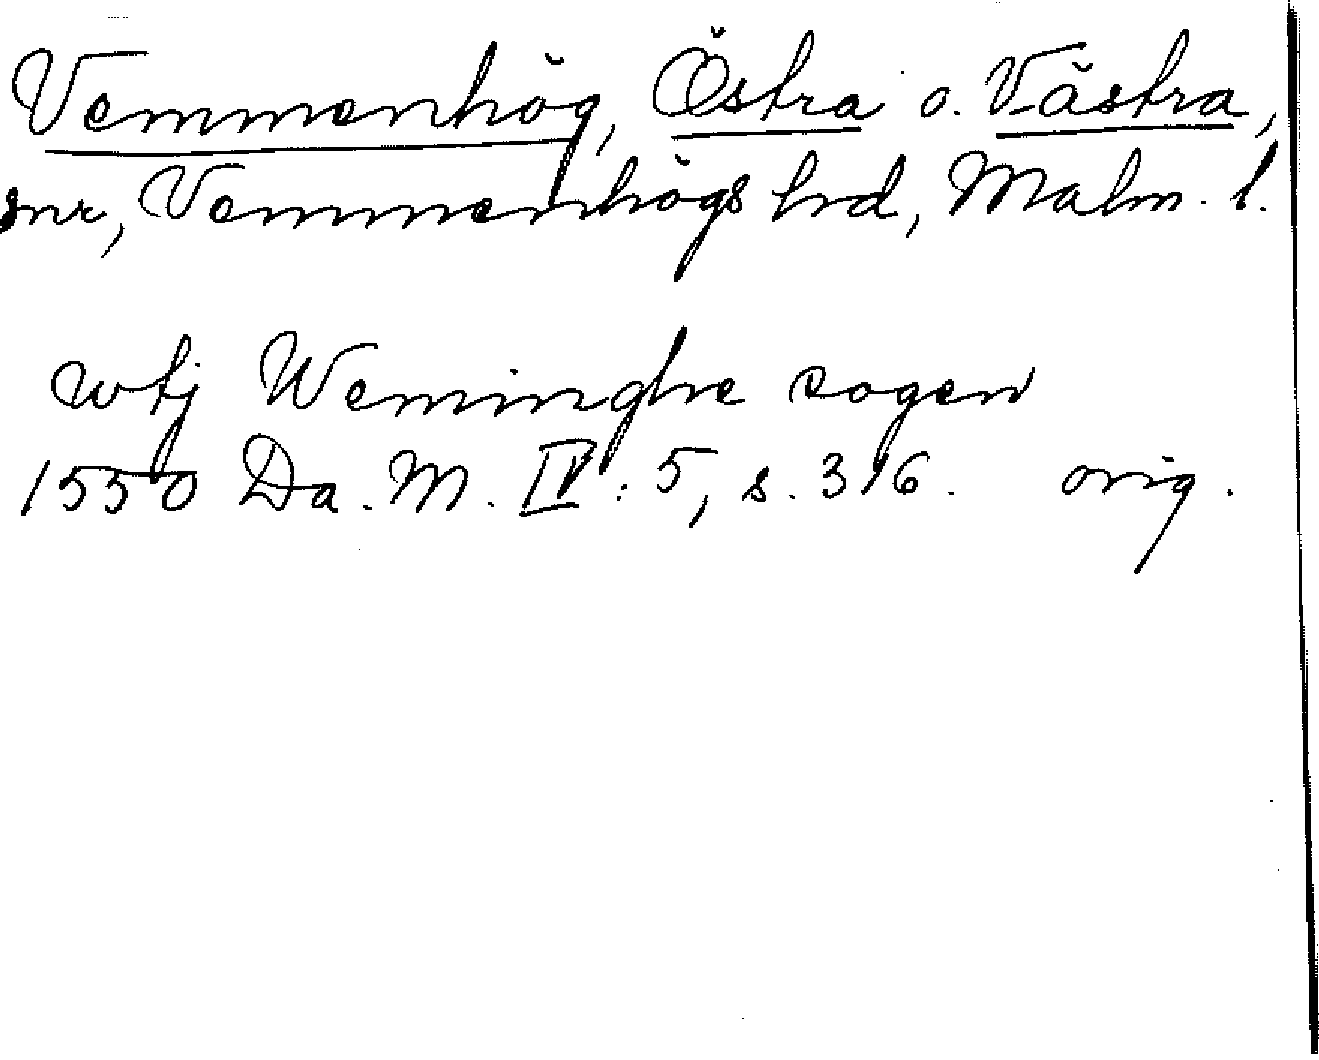 Vemmenhög, Östra o. Västra,
snr, Vemmenhögs hrd, Malm. l.
wtj Weminghe sogen
1550 Da. M. IV: 5, s. 316. orig.